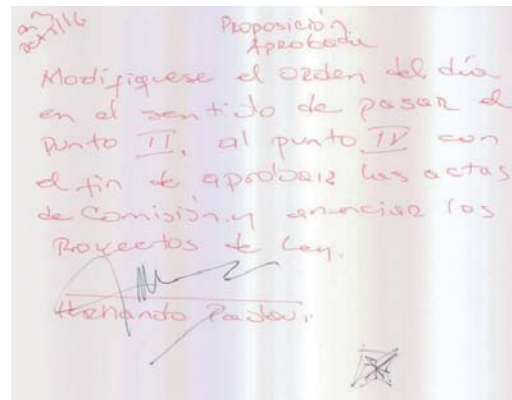 Proposición
Aprobada
Modifiquese el orden del día
en el sentido de pasar el
punto II, al punto IV con
el fin de aprobar las actas
de Comisión y anunciar los
Proyectos de Ley.
Hernando